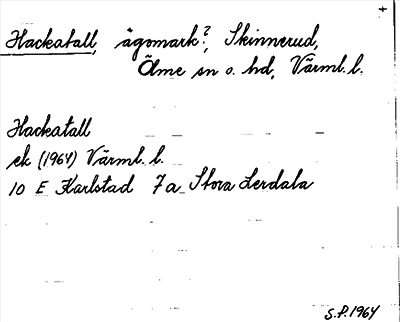 Hackatall, ägomark?, Skinnerud,
Ölme sn o. hd, Värml. l.
Hackatall
ek (1964) Värml. l.
10 E Karlstad 7a Stora Lerdala
S.P. 1964